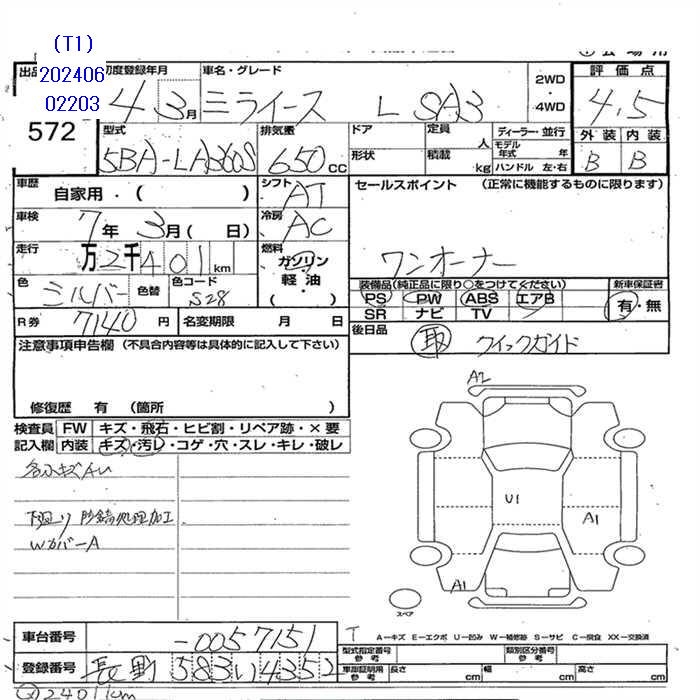 (T1)
202406
02203
出品
572
初度登録年月
4 3月
車名・グレード
ミライース L SA3
2WD
・
4WD
評価点
4.5
外装 内装
B B
型式
5BA-LA360S
排気量
650 CC
ドア
形状
定員 人
積載 kg
ディーラー・並行
モデル年式 年
ハンドル 左・右
車歴
自家用・( )
シフト
AT
車検
7年 3月( 日)
冷房
AC
走行
万2千401 km
燃料
ガソリン
軽油
( )
色
シルバー
色替
色コード
S28
R券
7140 円
名変期限 月 日
セールスポイント (正常に機能するものに限ります)
ワンオーナー
装備品(純正品に限り○をつけてください)
PS PW ABS エアB
SR ナビ TV
新車保証書
有・無
後日品
取 クイックガイド
注意事項申告欄 (不具合内容等は具体的に記入して下さい)
修復歴 有 (箇所 )
検査員 FW キズ・飛石・ヒビ割・リペア跡・×要
記入欄 内装 キズ・汚レ・コゲ・穴・スレ・キレ・破レ
下廻り 防錆処理加工
WカバーA
A2
U1
A1
A1
スペア
車台番号
-0057151
登録番号
長野 583 い 4352
T
A－キズ E－エクボ U－凹み W－補修跡 S－サビ C－腐食 XX－交換済
型式指定番号 参考
類別区分番号 参考
車庫証明用 参考
長さ cm 幅 cm 高さ cm